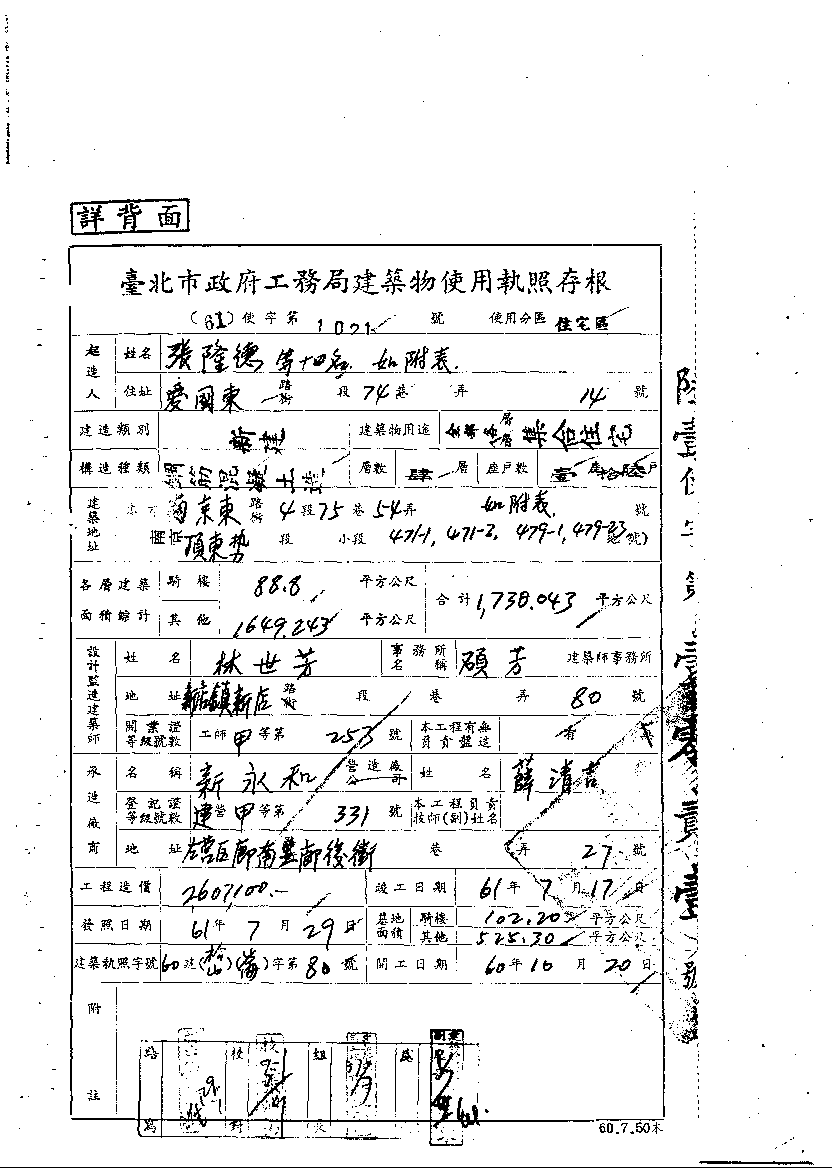 詳背面
臺北市政府工務局建築物使用執照存根
(61)使字第1021號 使用分區 住宅區
起造人 姓名 張隆德 等十四名 如附表.
住址 愛國東 路街 段 74巷 弄 14 號
建造類別 新建 建築物用途 集合住宅
構造種類 鋼筋混凝土造 層數 肆 層 座戶數 壹座拾陸戶
建築地址 南京東 路街 4段75巷54弄 如附表. 號
頂東勢 段 小段 471-1, 471-2, 479-1, 479-23 號)
各層建築面積總計 騎樓 88.8 平方公尺 合計 1,738.043 平方公尺
其他 1649.243 平方公尺
設計監造建築師 姓名 林世芳 事務所名稱 碩芳 建築師事務所
地址 新店鎮新店 路街 段 巷 弄 80 號
開業證等級號數 工師 甲 等第 253 號 本工程有無負責監造 有 無
承造廠商 名稱 新永和 營造廠公司 姓名 薛清吉
登記證等級號數 建營 甲 等第 331 號 本工程負責技師(副)姓名
地址 左營區廍南里廍後街 巷 弄 27 號
工程造價 2607,100.- 竣工日期 61年7月17日
發照日期 61年7月29日 基地面積 騎樓 102.20 平方公尺
其他 525.30 平方公尺
建築執照字號 60建(松山)(崙)字第80號 開工日期 60年10月20日
附註
繕寫 校對 組長
60.7.50本